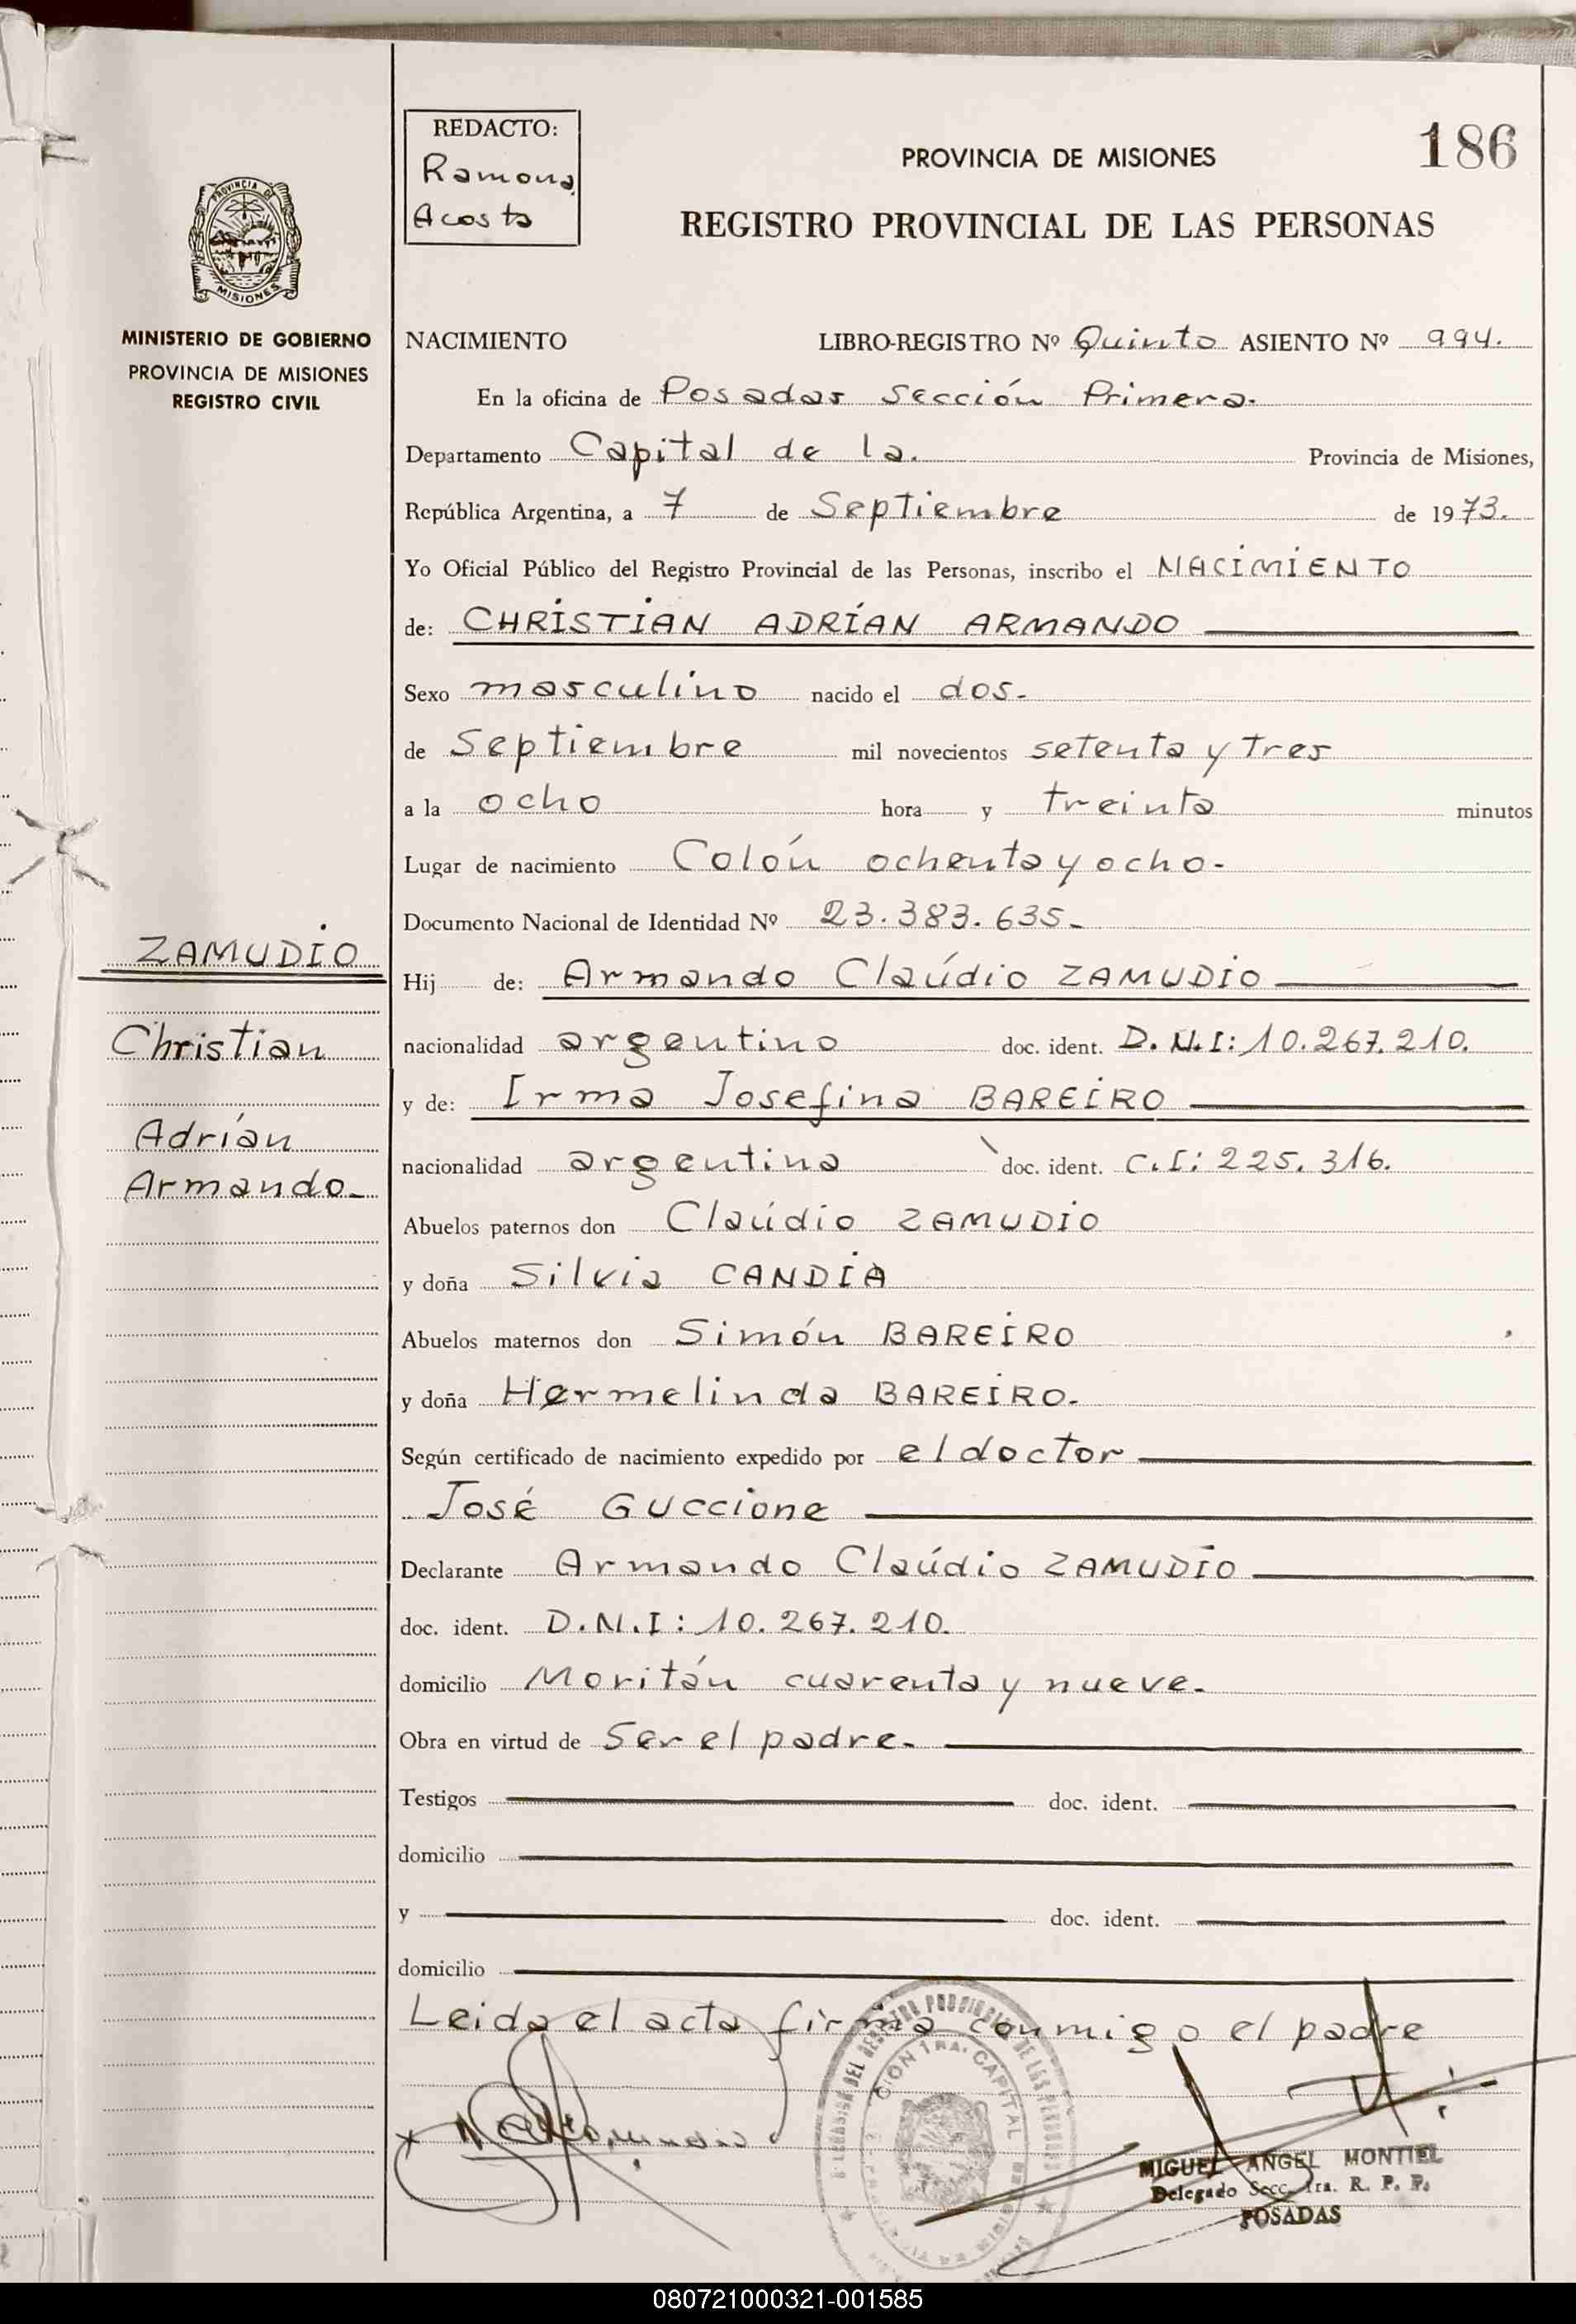 REDACTO:
Ramona
Acosta
PROVINCIA DE MISIONES
186
REGISTRO PROVINCIAL DE LAS PERSONAS
PROVINCIA DE
MISIONES
MINISTERIO DE GOBIERNO
PROVINCIA DE MISIONES
REGISTRO CIVIL
NACIMIENTO LIBRO-REGISTRO Nº Quinto ASIENTO Nº 994.
En la oficina de Posadas Sección Primera.
Departamento Capital de la. Provincia de Misiones,
República Argentina, a 7 de Septiembre de 1973.
Yo Oficial Público del Registro Provincial de las Personas, inscribo el NACIMIENTO
de: CHRISTIAN ADRÍAN ARMANDO
Sexo masculino nacido el dos.
de Septiembre mil novecientos setenta y tres
a la ocho hora y treinta minutos
Lugar de nacimiento Colón ochenta y ocho.
Documento Nacional de Identidad Nº 23.383.635.
ZAMUDIO
Christian
Adrían
Armando.
Hij de: Armando Claúdio ZAMUDIO
nacionalidad argentino doc. ident. D.N.I: 10.267.210.
y de: Irma Josefina BAREIRO
nacionalidad argentina doc. ident. C.I: 225.316.
Abuelos paternos don Claúdio ZAMUDIO
y doña Silvia CANDIA
Abuelos maternos don Simón BAREIRO
y doña Hermelinda BAREIRO.
Según certificado de nacimiento expedido por el doctor
José Guccione
Declarante Armando Claúdio ZAMUDIO
doc. ident. D.N.I: 10.267.210.
domicilio Moritán cuarenta y nueve.
Obra en virtud de Ser el padre.
Testigos doc. ident.
domicilio
y doc. ident.
domicilio
Leida el acta firma conmigo el padre
MIGUEL ANGEL MONTIEL
Delegado Secc. 1ra. R. P. P.
POSADAS
080721000321-001585